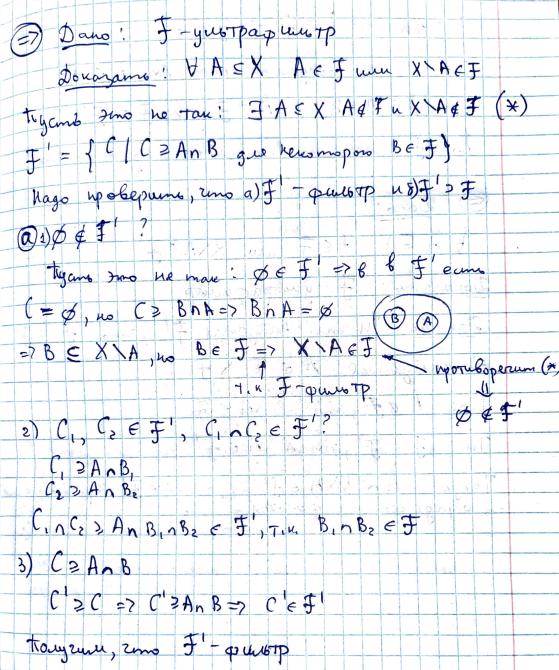 ⇒ Дано: F - ультрафильтр
Доказать: ∀ A ⊆ X A ∈ F или X\A ∈ F
Пусть это не так: ∃ A ⊆ X A ∉ F и X\A ∉ F (*)
F' = { C | C ⩾ A∩B для некоторого B ∈ F }
Надо проверить, что а) F' - фильтр и б) F' ⊃ F
а) 1) ∅ ∉ F' ?
Пусть это не так: ∅ ∈ F' ⇒ в в F' есть
C = ∅, но C ⩾ B∩A ⇒ B∩A = ∅
B A
⇒ B ⊆ X\A, но B ∈ F ⇒ X\A ∈ F
противоречит (*
т.к. F - фильтр
⇓
∅ ∉ F'
2) C₁, C₂ ∈ F', C₁∩C₂ ∈ F' ?
C₁ ⩾ A∩B₁
C₂ ⩾ A∩B₂
C₁∩C₂ ⩾ A∩B₁∩B₂ ∈ F', т.к. B₁∩B₂ ∈ F
3) C ⩾ A∩B
C' ⩾ C ⇒ C' ⩾ A∩B ⇒ C' ∈ F'
Получим, что F' - фильтр